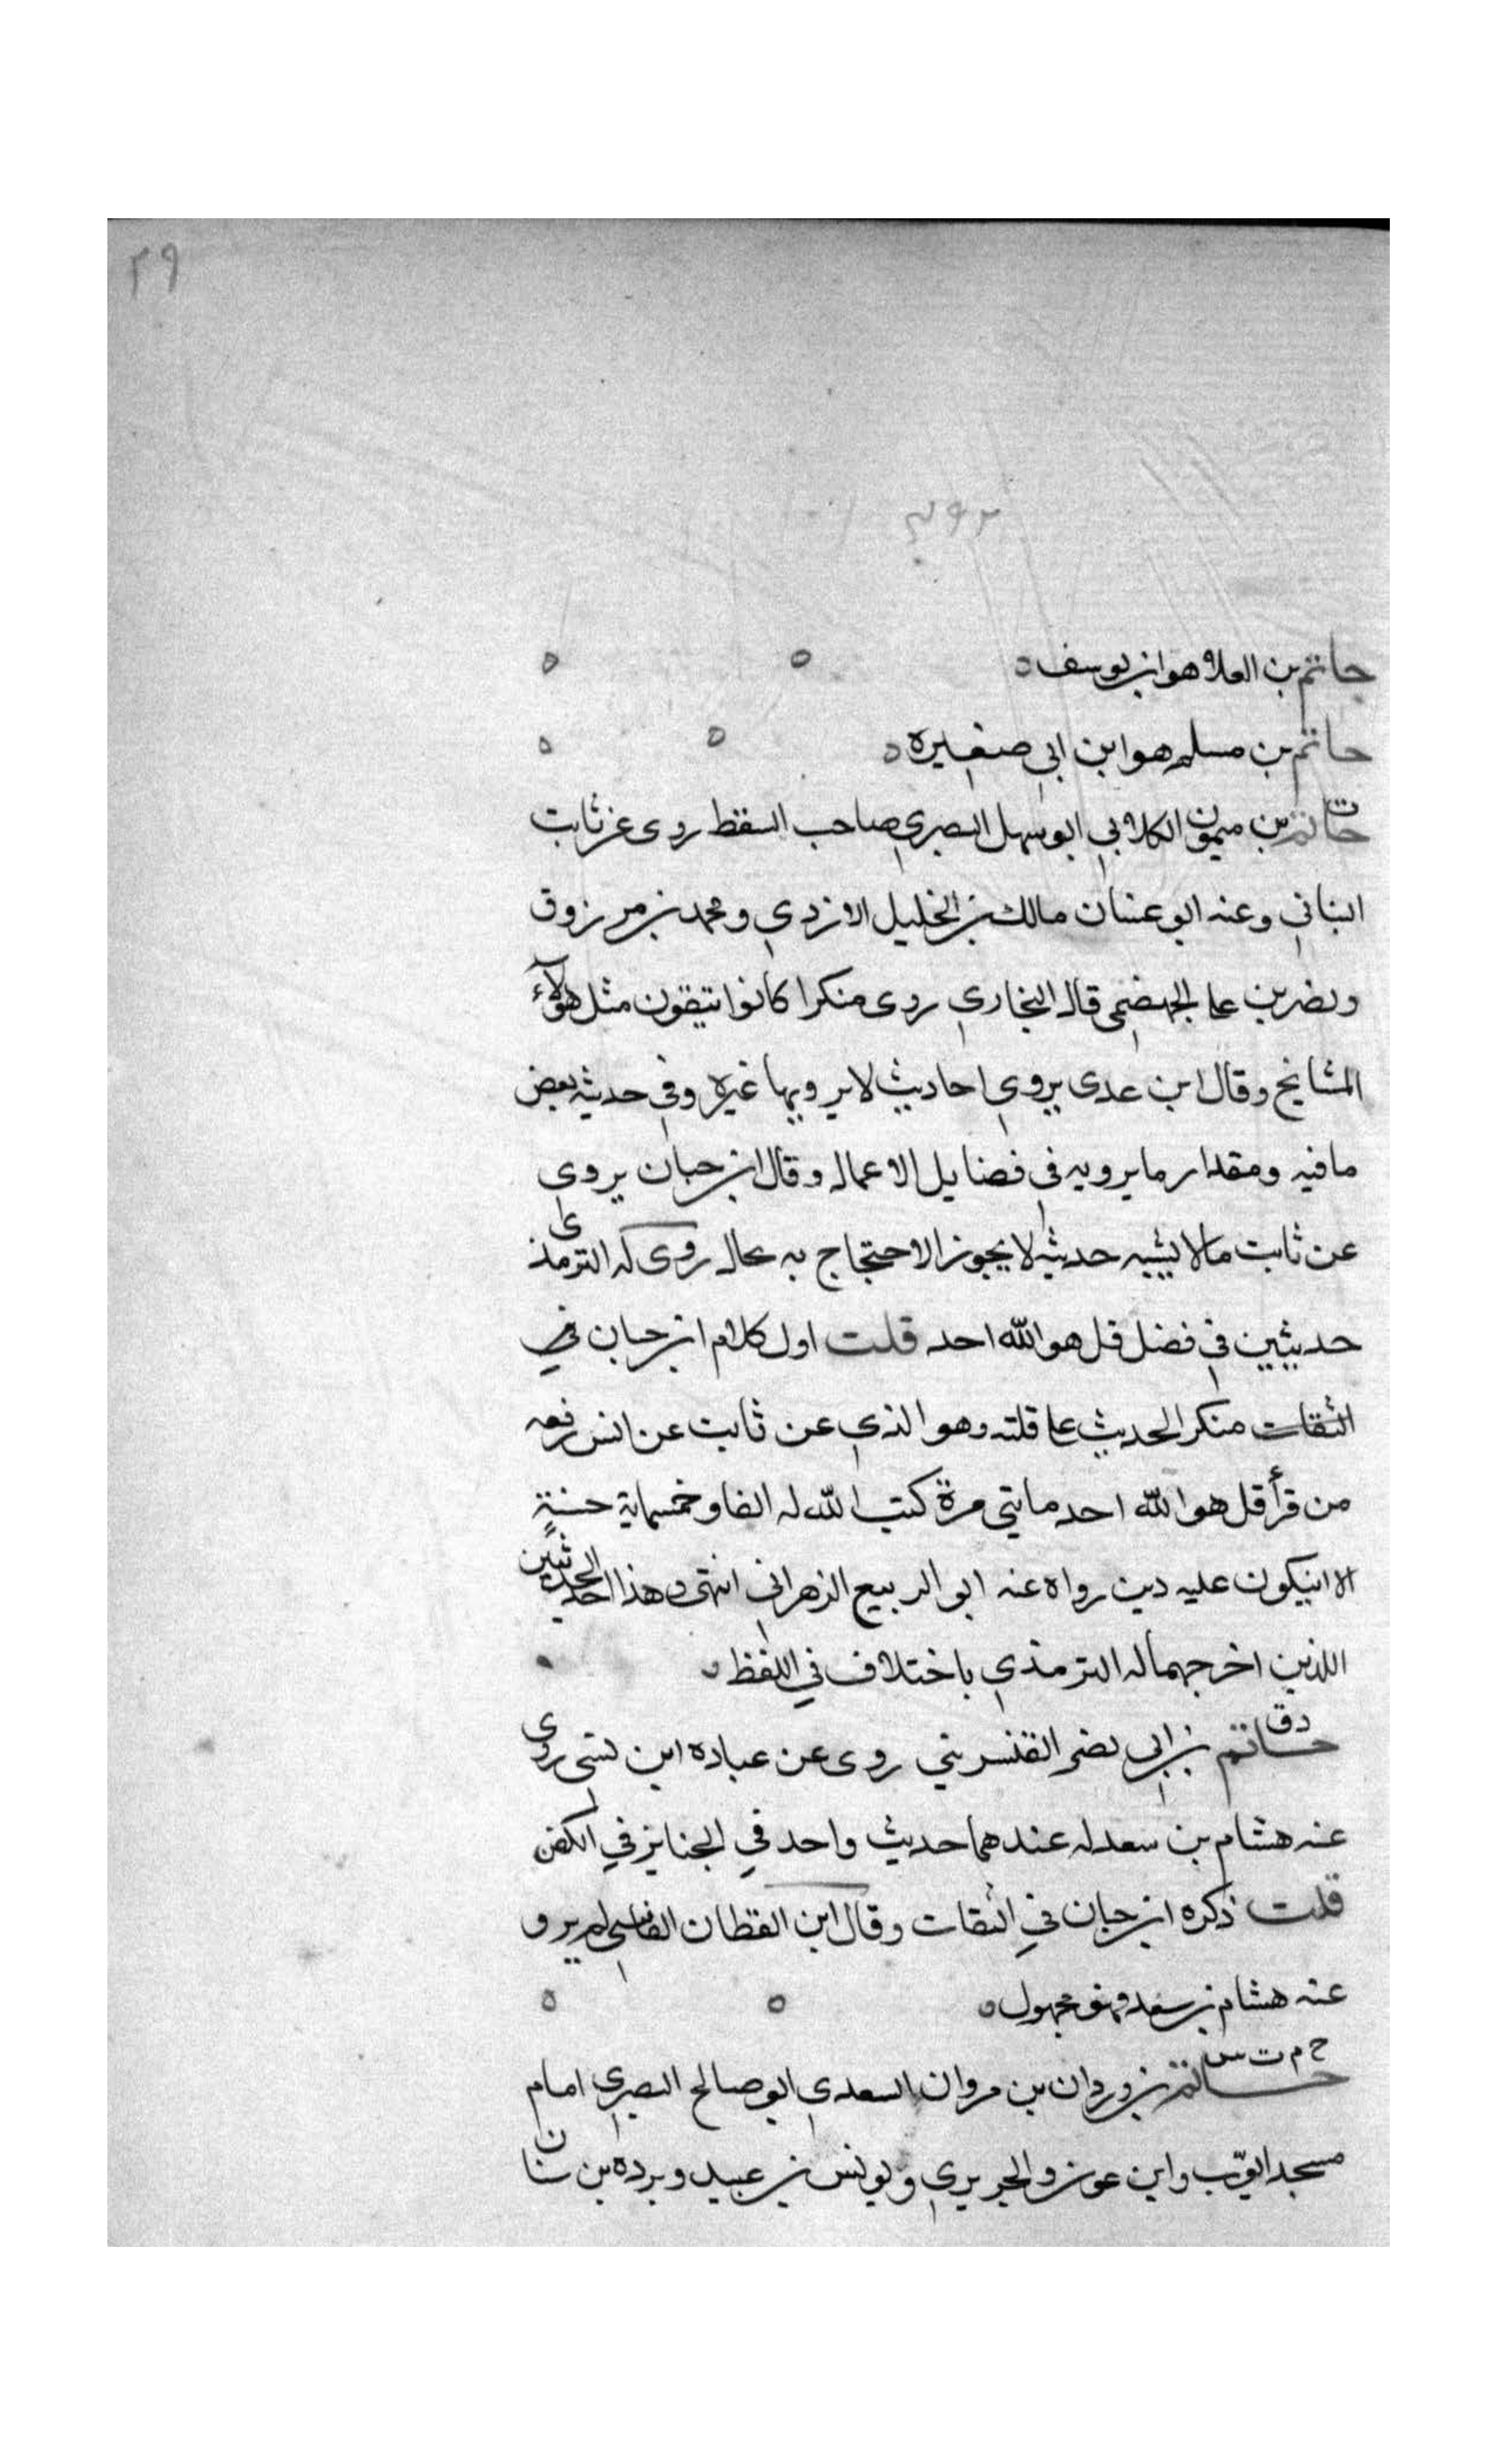 ٢٩
حاتم بن العلاء هو ابن يوسف
حاتم بن مسلم هو ابن ابي صغيره
ت
حاتم بن ميمون الكلابي ابو سهل البصري صاحب السقط روى عن ثابت
البناني وعنه ابو عتبان مالك بن الخليل الازدي ومحمد بن مرزوق
ونصر بن على الجهضمى قال البخاري روى منكرا كانوا يتقون مثل هؤلآء
المشايخ وقال ابن عدى يروي احاديث لا يرويها غيره وفي حديثه بعض
ما فيه ومقدار ما يرويه في فضايل الاعمال وقال ابن حبان يروي
عن ثابت مالا يشبه حديثه لا يجوز الاحتجاج به بحال روى له الترمذى
حديثين في فضل قل هو الله احد قلت اول كلام ابن حبان في
الثقات منكر الحديث على قلته وهو الذي عن ثابت عن انس رفعه
من قرأ قل هو الله احد مايتى مرة كتب الله له الفا وخمسماية حسنةٍ
الا ان يكون عليه دين رواه عنه ابو الربيع الزهراني انتهى وهذا احد الحديثين
اللذين اخرجهما له الترمذي باختلاف في اللفظ
د ق
حاتم بن ابي نصر القنسريني روى عن عباده ابن نسى روى
عنه هشام بن سعد له عندهما حديث واحد في الجنايز في الكفن
قلت ذكره ابن حبان في الثقات وقال ابن القطان الفاسي لم يرو
عنه هشام بن سعد فهو مجهول
خ م ت س
حاتم بن وردان بن مروان السعدي ابو صالح البصري امام
مسجد ايوّب وابن عون والجريري ويونس بن عبيد وبرده بن سنان